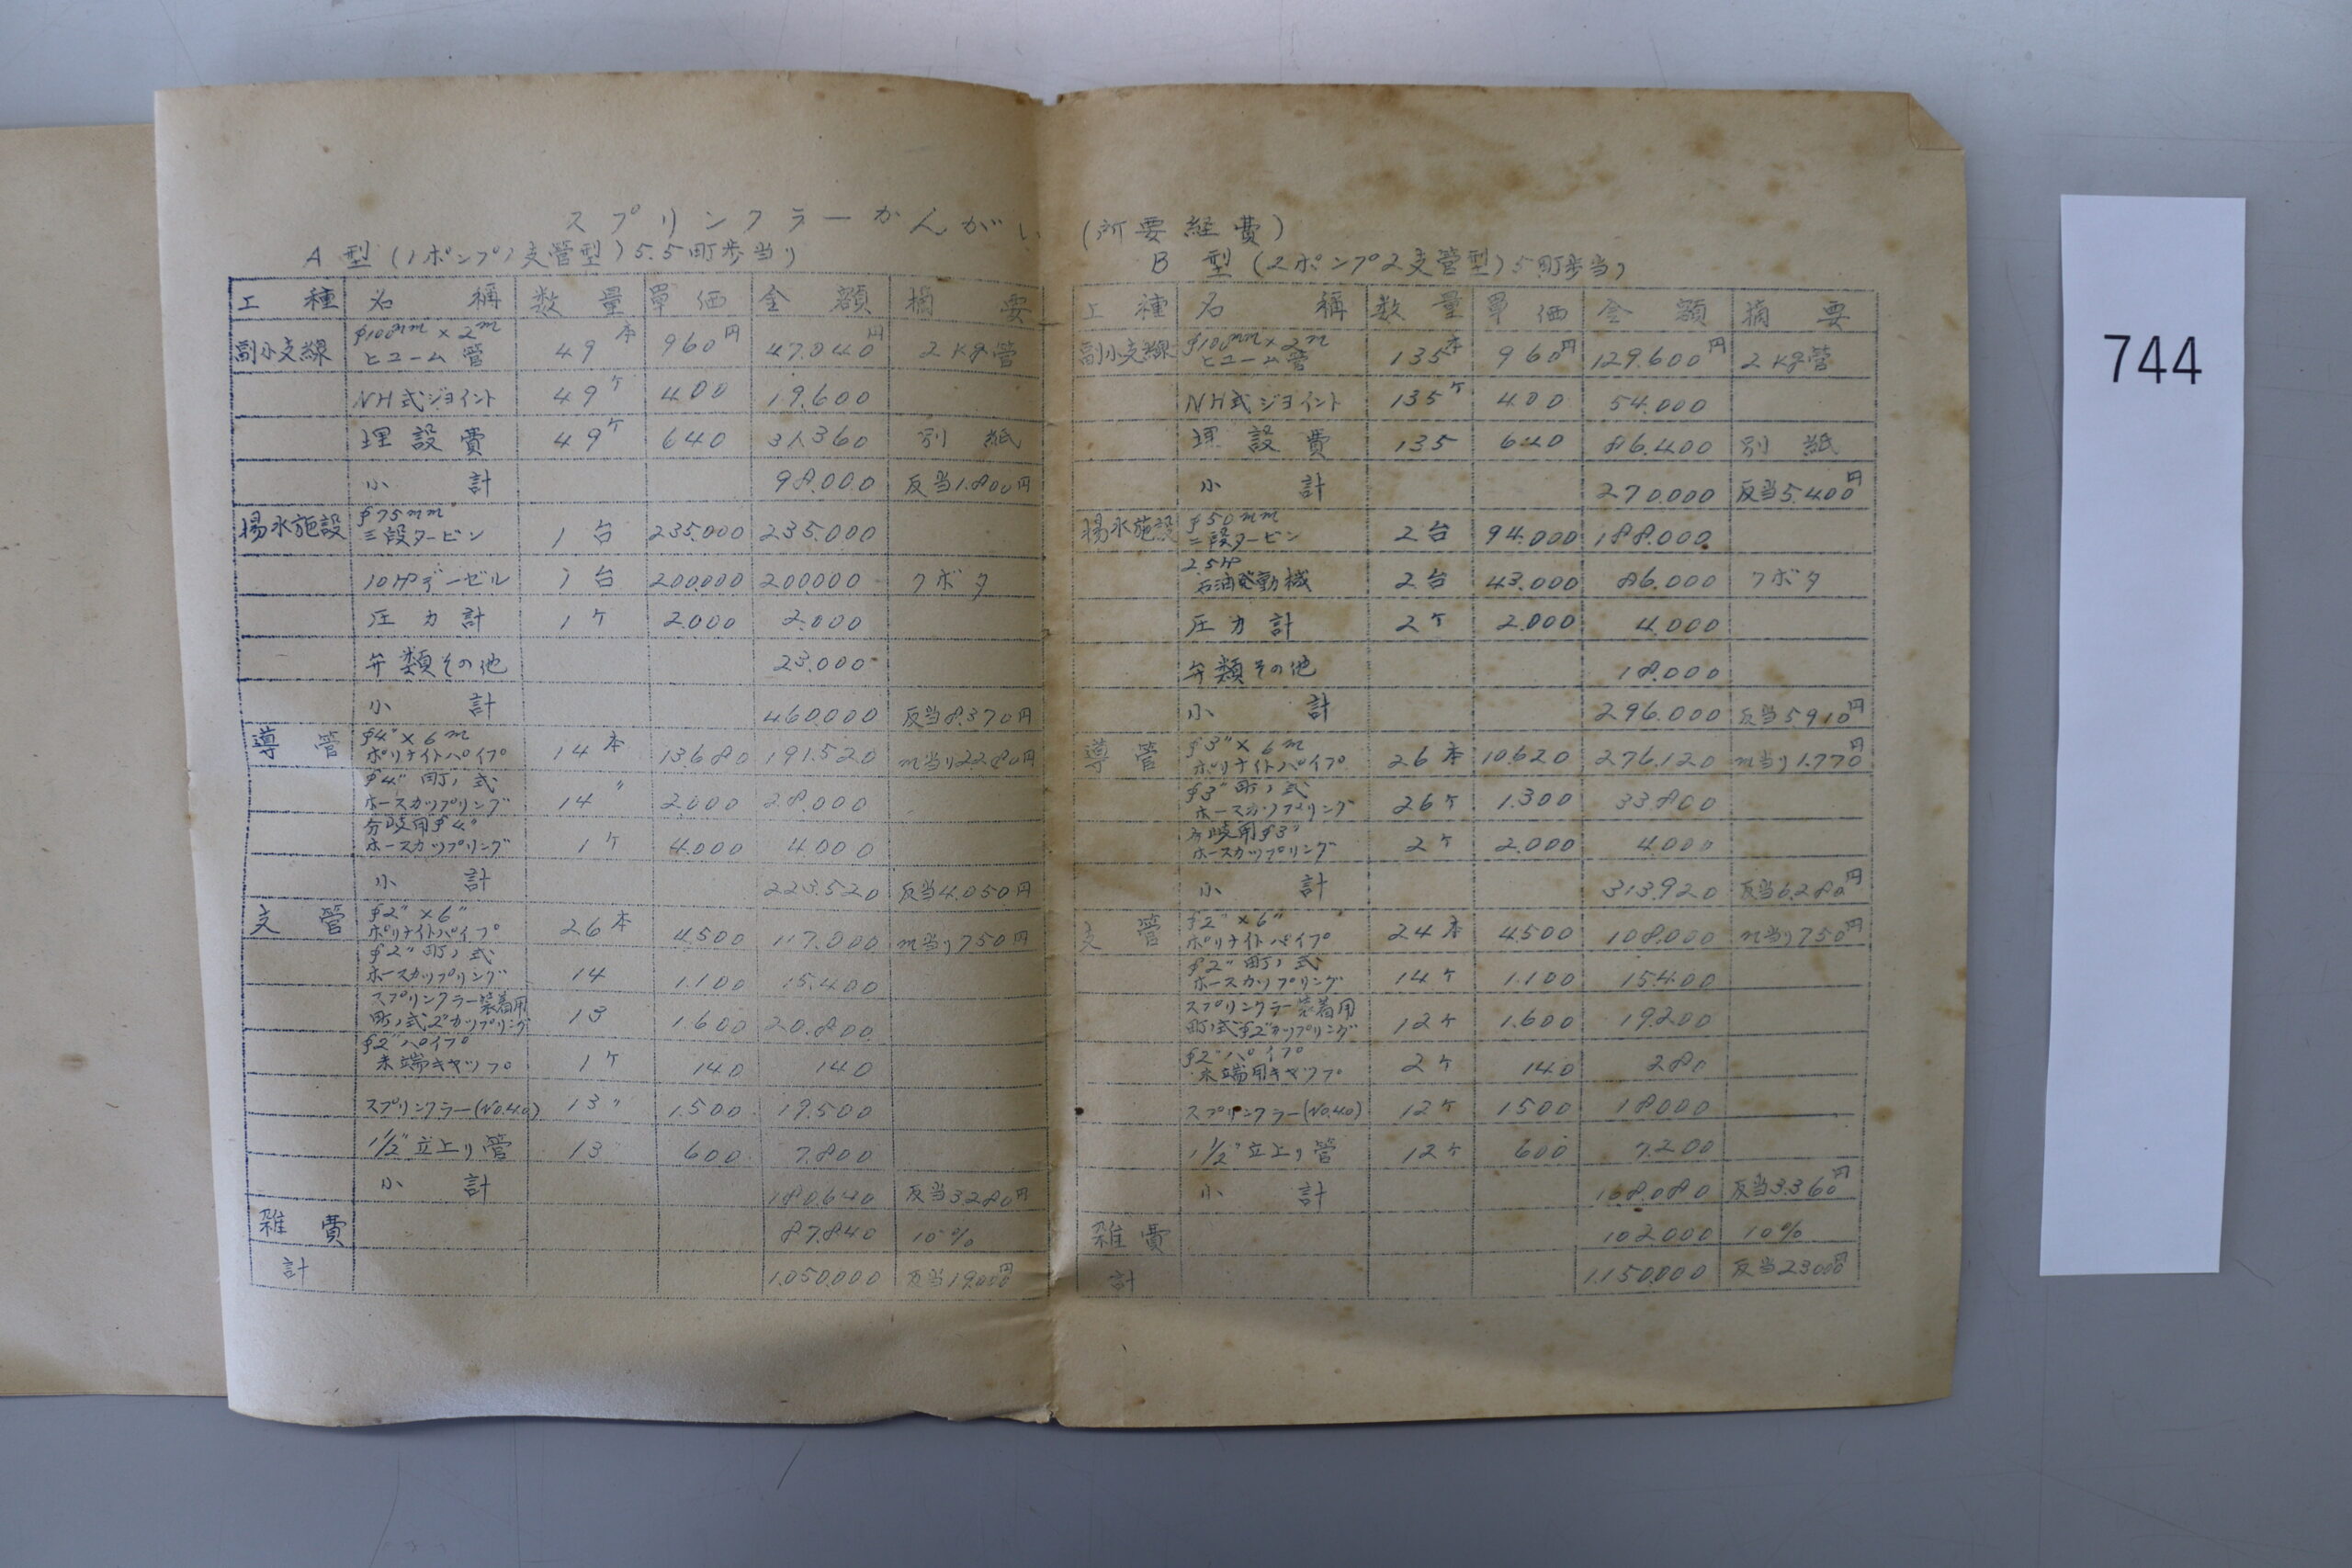 スプリンクラーかんがい (所要経費)
A 型 (1ポンプ1支管型) 5.5町歩当り
工種 名稱 数量 單価 金額 摘要
副小支線 φ100mm×2m ヒューム管 49本 960円 47.040円 2kg管
NH式ジョイント 49ケ 400 19.600
埋設費 49ケ 640 31.360 別紙
小計 98.000 反当1.800円
揚水施設 φ75mm 三段タービン 1台 235.000 235.000
10HPデーゼル 1台 200.000 200.000 クボタ
圧力計 1ケ 2.000 2.000
弁類その他 23.000
小計 460.000 反当8.370円
導管 φ4"×6m ポリナイトパイプ 14本 13.680 191.520 m当り2.280円
φ4" 町ノ式 ホースカップリング 14〃 2.000 28.000
分岐用φ4" ホースカップリング 1ケ 4.000 4.000
小計 223.520 反当4.050円
支管 φ2"×6" ポリナイトパイプ 26本 4.500 117.000 m当り750円
φ2" 町ノ式 ホースカップリング 14 1.100 15.400
スプリンクラー装着用 町ノ式2"カップリング 13 1.600 20.800
φ2"パイプ 末端キャップ 1ケ 140 140
スプリンクラー(No.40) 13〃 1.500 19.500
1/2"立上り管 13 600 7.800
小計 180.640 反当3.280円
雑費 87.840 10%
計 1.050.000 反当19.000円
B 型 (2ポンプ2支管型) 5町歩当り
工種 名稱 数量 單価 金額 摘要
副小支線 φ100mm×2m ヒューム管 135本 960円 129.600円 2kg管
NH式ジョイント 135ケ 400 54.000
埋設費 135 640 86.400 別紙
小計 270.000 反当5.400円
揚水施設 φ50mm 二段タービン 2台 94.000 188.000
2.5HP 石油発動機 2台 43.000 86.000 クボタ
圧力計 2ケ 2.000 4.000
弁類その他 18.000
小計 296.000 反当5910円
導管 φ3"×6m ポリナイトパイプ 26本 10.620 276.120 m当り1.770円
φ3" 町ノ式 ホースカップリング 26ケ 1.300 33.800
分岐用φ3" ホースカップリング 2ケ 2.000 4.000
小計 313.920 反当6.280円
支管 φ2"×6" ポリナイトパイプ 24本 4.500 108.000 m当り750円
φ2" 町ノ式 ホースカップリング 14ケ 1.100 15.400
スプリンクラー装着用 町ノ式φ2"カップリング 12ケ 1.600 19.200
φ2"パイプ 末端用キャップ 2ケ 140 280
スプリンクラー(No.40) 12ケ 1500 18000
1/2"立上り管 12ケ 600 7.200
小計 168.080 反当3.360円
雑費 102.000 10%
計 1.150.000 反当23.000円
744